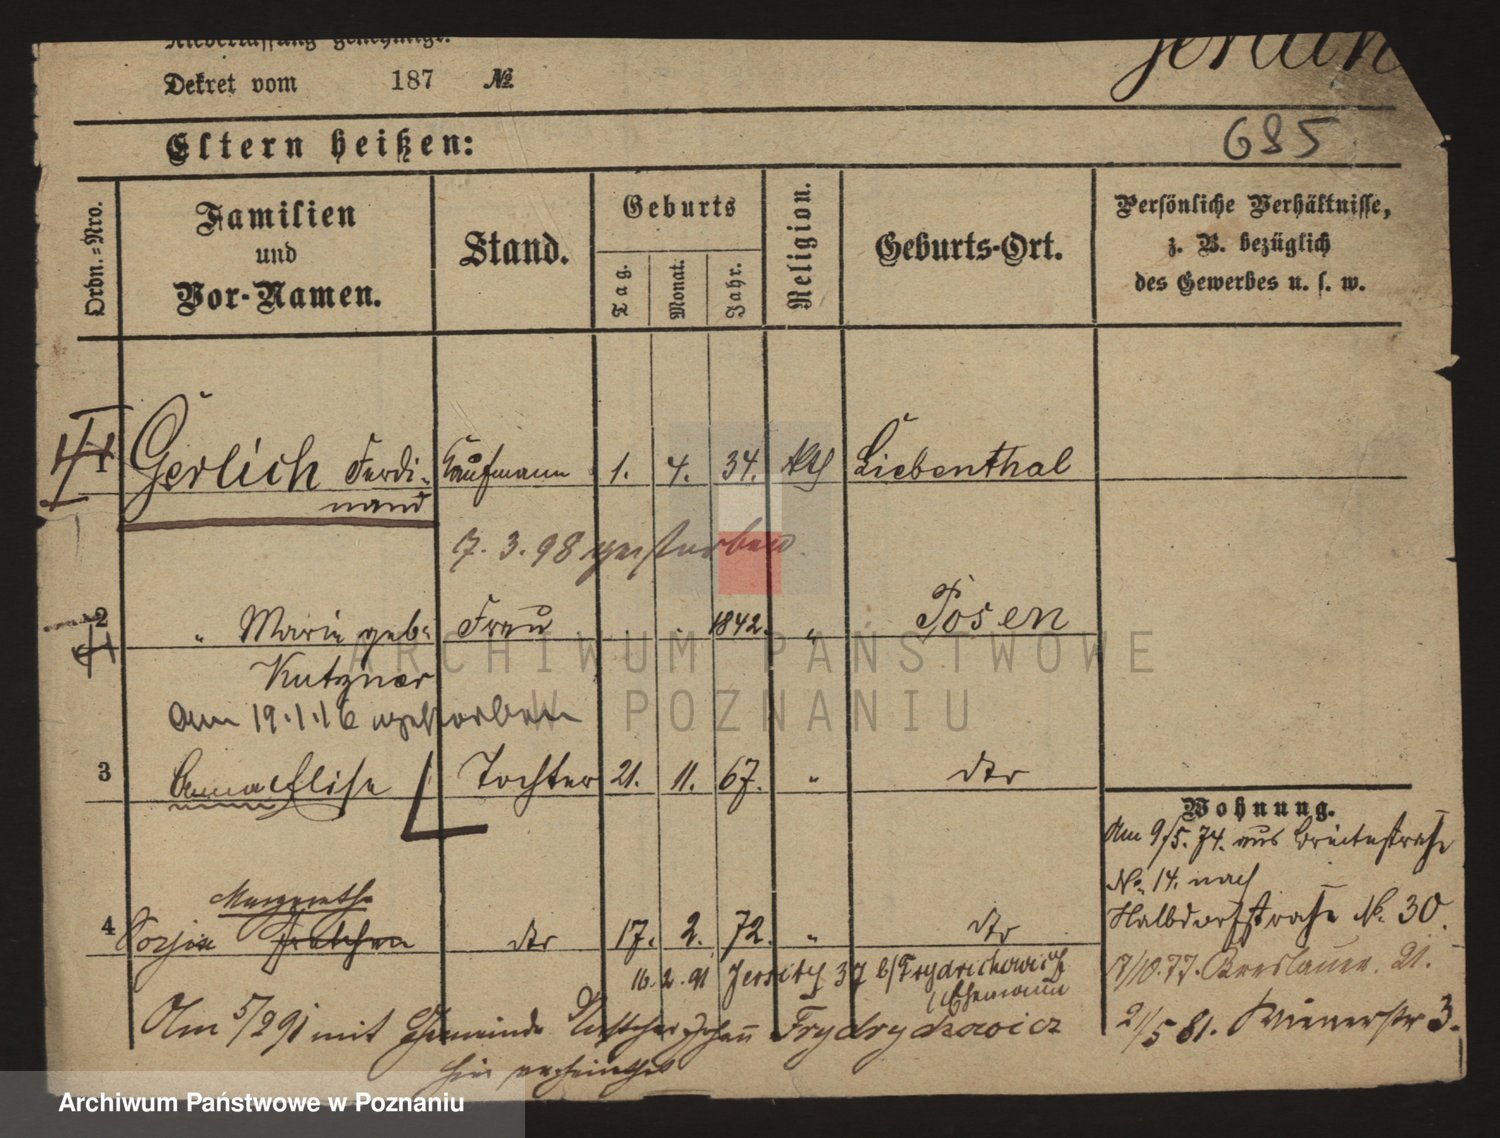 Niederlassung genehmigt.
Dekret vom 187 №
685
Eltern heißen:
Ordn.=Nro.
Familien
und
Vor-Namen.
Stand.
Geburts
Tag.
Monat.
Jahr.
Religion.
Geburts-Ort.
Persönliche Verhältnisse,
z. B. bezüglich
des Gewerbes u. s. w.
1 Gerlich Ferdi- Kaufmann 1. 4. 34. kth Liebenthal
nand
7. 3. 98 gestorben
2 " Marie geb. Frau 1842. " Posen
Kutzner
am 19.1.16 gestorben
3 Anna Elise Tochter 21. 11. 67. " dto
Wohnung.
Am 9/5. 74. aus Breitestraße
No. 14. nach
Halbdorfstraße No. 30.
Margarethe
4 dto 17. 2. 72. " dto
16. 2. 91 Jersitz 37 b/Frydrichowicz
Ehemann
17/10.77. Breslauer. 21.
21/5 81. Wienerstr 3.
Am 5/2 91 mit Gemeinde Johann Frydrychowicz
hier
ARCHIWUM PAŃSTWOWE
W POZNANIU
Archiwum Państwowe w Poznaniu